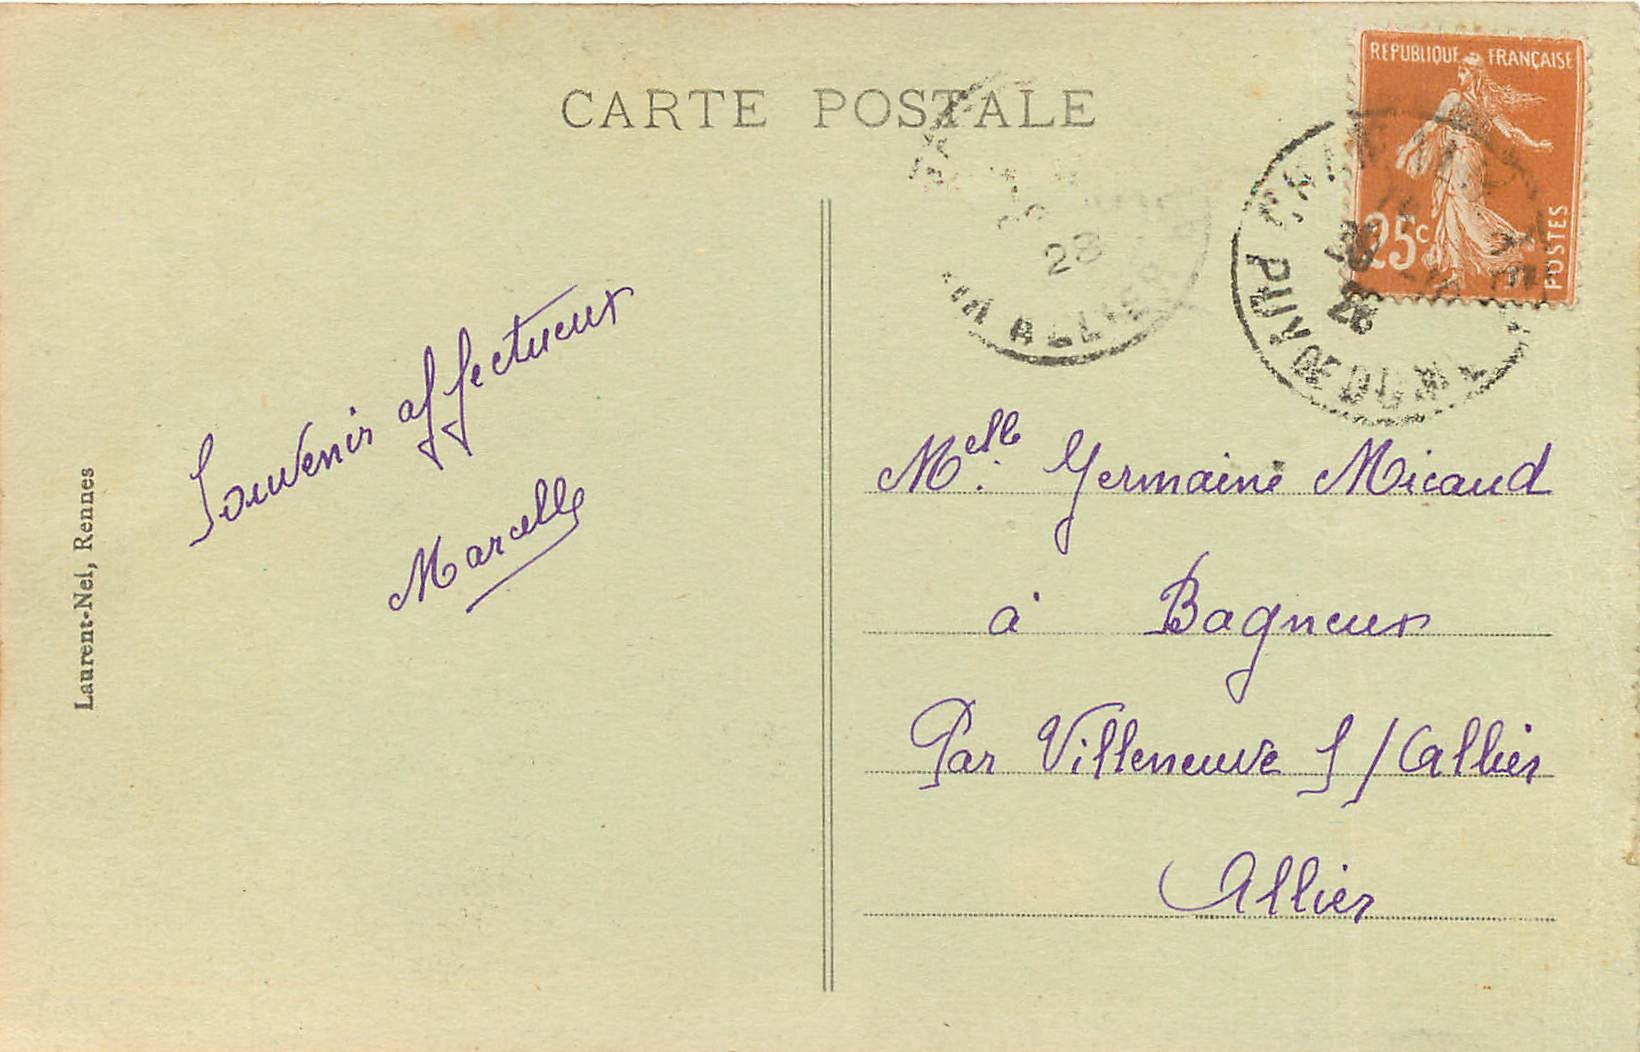 CARTE POSTALE
REPUBLIQUE FRANÇAISE
25c
POSTES
PUY DE DOME
28
28
ALLIER
Souvenir affectueux
Marcelle
Melle. Germaine Micaud
à Bagneux
Par Villeneuve s/Allier
Allier
Laurent-Nel, Rennes